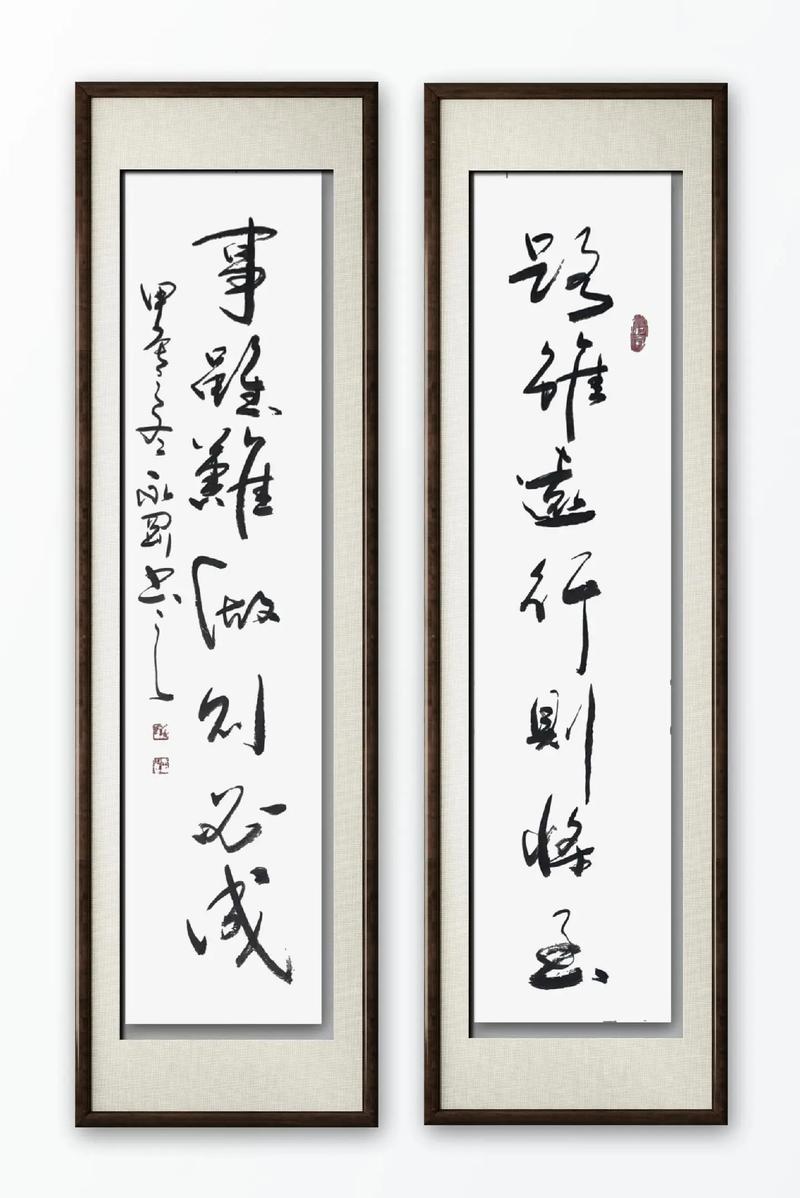 路雖遠行則將至
事雖難做則必成
甲辰之冬永剛書之